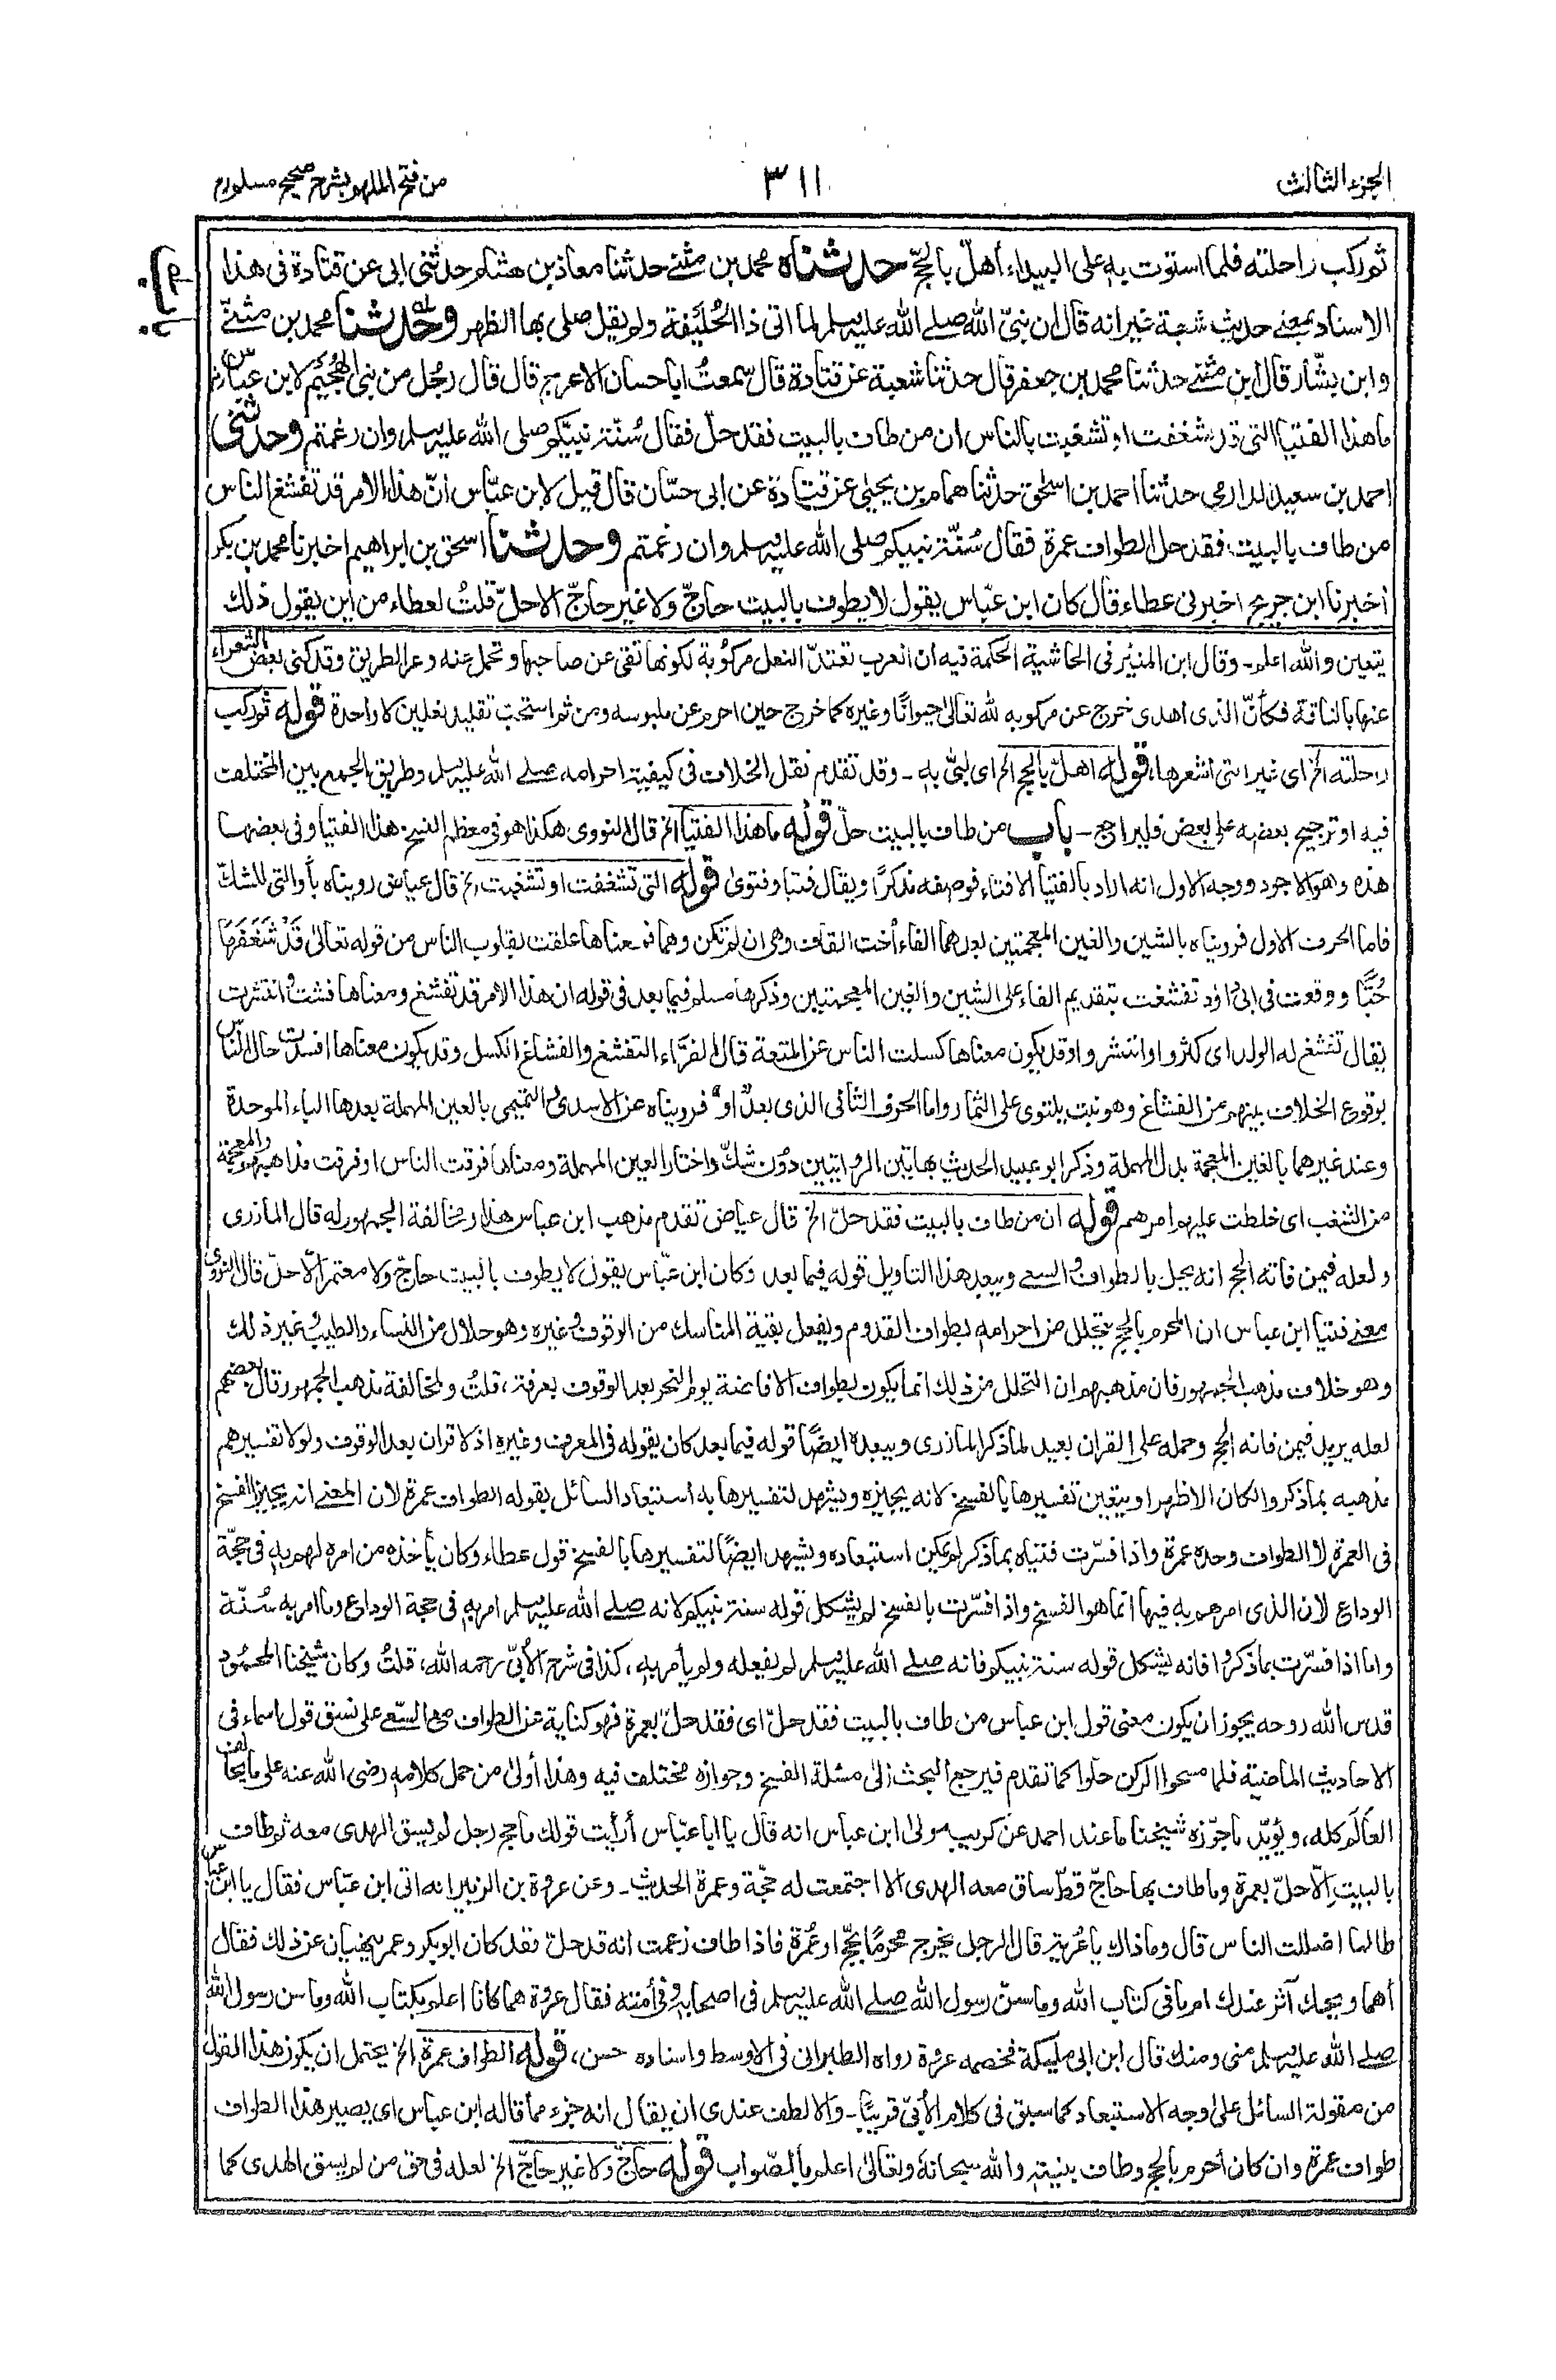 الجزء الثالث
٣١١
من فتح الملهم بشرح صحيح مسلم
باب
ثم ركب راحلته فلما استوت به على البيداء أهلّ بالحجّ حدثناه محمد بن مثنى حدثنا معاذ بن هشام حدثنى ابى عن قتادة فى هذا
الاسناد بمعنى حديث شعبة غير انه قال ان نبىّ الله صلى الله عليه وسلم لما اتى ذا الحُليَفة ولم يقل صلى بها الظهر وحدثنا محمد بن مثنىّ
وابن بشّار قال ابن مثنى حدثنا محمد بن جعفر قال حدثنا شعبة عن قتادة قال سمعتُ ابا حسان الاعرج قال قال رجُل من بنى الهُجَيْم لابن عباس
ما هذا الفتيا التى قد تشغفت او تشغبت بالناس ان من طاف بالبيت فقد حلّ فقال سُنّة نبيّكم صلى الله عليه وسلم وان رغمتم وحدثنى
احمد بن سعيد الدارمى حدثنا احمد بن اسحٰق حدثنا همام بن يحيٰى عن قتادة عن ابى حسّان قال قيل لابن عبّاس انّ هذا الامر قد تفشغ الناس
من طاف بالبيت فقد حل الطواف عمرة فقال سُنّة نبيكم صلى الله عليه وسلم وان رغمتم وحدثنا اسحق بن ابراهيم اخبرنا محمد بن بكر
اخبرنا ابن جريج اخبرنى عطاء قال كان ابن عبّاس يقول لا يطوف بالبيت حاجّ ولا غير حاجّ الا حلّ قلتُ لعطاء من اين يقول ذلك
يتعين والله اعلم ـ وقال ابن المنيّر فى الحاشية الحكمة فيه ان العرب تعتدّ النعل مركوبة لكونها تقى عن صاحبها وتحمل عنه وعر الطريق وقد كنى بعض الشعراء
عنها بالناقة فكأنّ الذى اهدى خرج عن مركوبه لله تعالى حيوانًا وغيره كما خرج حين احرم عن ملبوسه ومن ثم استحب تقليد نعلين لا واحدة قوله ثم ركب
راحلته الخ اى غير التى اشعرها، قوله اهلّ بالحج الخ اى لبّى به ـ وقد تقدم نقل الخلاف فى كيفية احرامه صلى الله عليه وسلم وطريق الجمع بين المختلف
فيه او ترجيح بعضه على بعض فليراجع ـ باب من طاف بالبيت حلّ قوله ما هذا الفتيا الخ قال النووى هكذا هو فى معظم النسخ هذا الفتيا وفى بعضها
هذه وهو الاجود ووجه الاول انه اراد بالفتيا الافتاء فوصفه مذكرًا ويقال فتيا وفتوى قوله التى تشغفت او تشغبت الخ قال عياض رويناه بأو التى للشكّ
فاما الحرف الاول فرويناه بالشين والغين المعجمتين بعدهما الفاء أخت القاف وهى ان لم تكن وهما فمعناها علقت بقلوب الناس من قوله تعالى قَدْ شَغَفَهَا
حُبًّا ووقعت فى ابى داؤد تفشغت بتقديم الفاء على الشين والغين المعجمتين وذكرها مسلم فيما بعد فى قوله ان هذا الامر قد تفشغ ومعناها فشت وانتشرت
يقال تفشغ له الولد اى كثروا وانتشروا وقد يكون معناها كسلت الناس عن المتعة قال الفرّاء التفشغ والفشاغ الكسل وقد يكون معناها افسدت حال الناس
بوقوع الخلاف بينهم من الفشاغ وهو نبت يلتوى على الثمار واما الحرف الثانى الذى بعد او فرويناه عن الاسدى والتميمى بالعين المهملة بعدها الباء الموحدة
وعند غيرهما بالغين المعجمة بدل المهملة وذكر ابو عبيد الحديث بهاتين الروايتين دون شكّ واختار العين المهملة ومعناها فرقت الناس او فرقت مذاهبهم والمعجمة
من الشغب اى خلطت عليهم امرهم قوله ان من طاف بالبيت فقد حلّ الخ قال عياض تقدم مذهب ابن عباس هذا ومخالفة الجمهور له قال المازرى
ولعله فيمن فاته الحج انه يحل بالطواف والسعى ويبعد هذا التاويل قوله فيما بعد وكان ابن عبّاس يقول لا يطوف بالبيت حاجّ ولا معتمر الّا حلّ قال النووى
معنى فتيا ابن عباس ان المحرم بالحج يتحلل من احرامه بطواف القدوم ويفعل بقية المناسك من الوقوف وغيره وهو حلال من النساء والطيب وغير ذلك
وهو خلاف مذهب الجمهور فان مذهبهم ان التحلل من ذلك انما يكون بطواف الافاضة يوم النحر بعد الوقوف بعرفة، قلتُ ولمخالفة مذهب الجمهور قال بعضهم
لعله يريد فيمن فاته الحج وحمله على القران بعيد لما ذكر المازرى ويبعده ايضًا قوله فيما بعد كان يقوله فى المعرف وغيره اذ لا قران بعد الوقوف ولولا تفسيرهم
مذهبه بما ذكروا لكان الاظهر او يتعين تفسيرها بالفسخ لانه يجيزه ويشهد لتفسيرها به استبعاد السائل بقوله الطواف عمرة لان المعنى انه يجيز الفسخ
فى العمرة لا الطواف وحده عمرة واذا فسّرت فتياه بما ذكر لم يمكن استبعاده ويشهد ايضًا لتفسيرها بالفسخ قول عطاء وكان يأخذه من امره لهم به فى حجّة
الوداع لان الذى امرهم به فيها انما هو الفسخ واذا فسّرت بالفسخ لم يشكل قوله سنة نبيكم لانه صلى الله عليه وسلم امر به فى حجة الوداع وما امر به سُنّة
واما اذا فسّرت بما ذكروا فانه يشكل قوله سنة نبيكم فانه صلى الله عليه وسلم لم يفعله ولم يأمر به، كذا فى شرح الأُبىّ رحمه الله، قلتُ وكان شيخنا المحمُود
قدس الله روحه يجوز ان يكون معنى قول ابن عباس من طاف بالبيت فقد حلّ اى فقد حلّ بعمرة فهو كناية عن الطواف مع السّعى على نسق قول اسماء فى
الاحاديث الماضية فلما مسحوا الركن حلوا كما تقدم فيرجع البحث الى مسئلة الفسخ وجوازه مختلف فيه وهذا أولى من حمل كلامه رضى الله عنه على ما يخالف
العالَم كله، ويؤيّد ما جوّزه شيخنا ما عند احمد عن كريب مولى ابن عباس انه قال يا ابا عبّاس أرأيت قولك ما حج رجل لم يسق الهدى معه ثم طاف
بالبيت الّا حلّ بعمرة وما طاف بها حاجّ قطّ ساق معه الهدى الا اجتمعت له حجّة وعمرة الحديث ـ وعن عروة بن الزبير انه اتى ابن عبّاس فقال يا ابن عباس
طالما اضللت الناس قال وما ذاك يا عُريّة قال الرجل يخرج محرمًا بحجّ او عُمرة فاذا طاف زعمت انه قد حلّ فقد كان ابو بكر وعمر ينهيان عن ذلك فقال
أهما ويحك آثر عندك ام ما فى كتاب الله وما سنّ رسول الله صلى الله عليه وسلم فى اصحابه وفى أمته فقال عروة هما كانا اعلم بكتاب الله وما سن رسول الله
صلى الله عليه وسلم منى ومنك قال ابن ابى مليكة فخصمه عروة رواه الطبرانى فى الاوسط واسناده حسن، قوله الطواف عمرة الخ يحتمل ان يكون هذا القول
من مقولة السائل على وجه الاستبعاد كما سبق فى كلام الأُبىّ قريبًا ـ والالطف عندى ان يقال انه جزء مما قاله ابن عباس اى يصير هذا الطواف
طواف عمرة وان كان أحرم بالحج وطاف بنيته والله سبحانهٗ وتعالىٰ اعلم بالصّواب قوله حاجّ ولا غير حاجّ الخ لعله فى حق من لم يسق الهدى كما